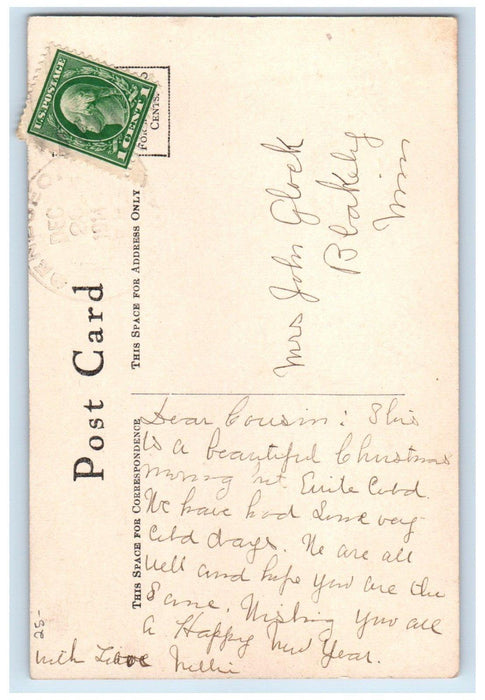 U.S. POSTAGE
1 CENT 1
CENTS.
DEC
Post Card
THIS SPACE FOR ADDRESS ONLY
THIS SPACE FOR CORRESPONDENCE
Mrs John Glock
Blakely
Minn
Dear Cousin: This
is a beautiful Christmas
morning but Quite Cold.
We have had Some very
Cold days. We are all
Well and hope you are the
Same. Wishing you all
a Happy New Year.
with Love Nellie
25-